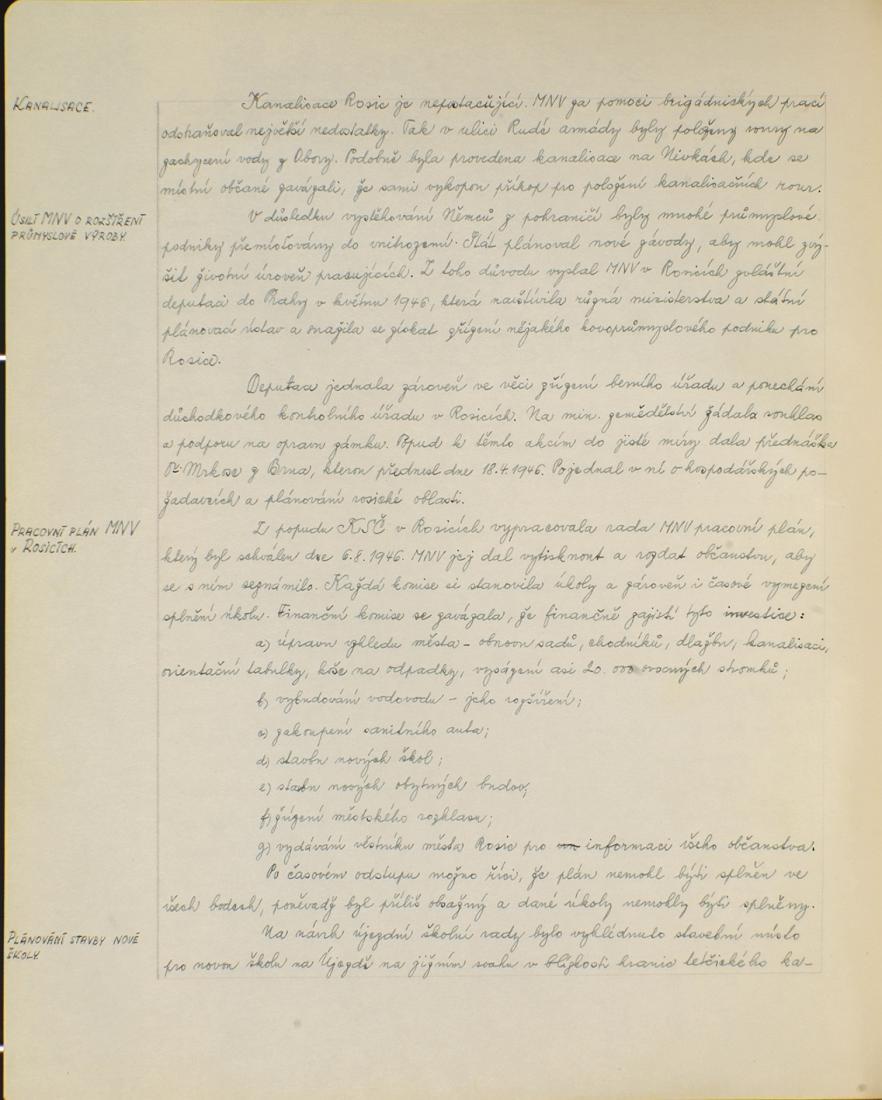 KANALISACE.
Kanalisace Rosic je nepostačující. MNV za pomoci brigádnických prací
odstraňoval největší nedostatky. Tak v ulici Rudé armády byly položeny roury na
zachycení vody z Obory. Podobně byla provedena kanalisace na Nivkách, kde se
místní občané zavázali, že sami vykopou příkop pro položení kanalisačních rour.
ÚSILÍ MNV O ROZŠÍŘENÍ
PRŮMYSLOVÉ VÝROBY.
V důsledku vystěhování Němců z pohraničí byly mnohé průmyslové
podniky přemisťovány do vnitrozemí. Stát plánoval nové závody, aby mohl zvý-
šit životní úroveň pracujících. Z toho důvodu vyslal MNV v Rosicích zvláštní
deputaci do Prahy v květnu 1946, která navštívila různá ministerstva a státní
plánovací ústav a snažila se získat zřízení nějakého kovoprůmyslového podniku pro
Rosice.
Deputace jednala zároveň ve věci zřízení berního úřadu a ponechání
důchodkového kontrolního úřadu v Rosicích. Na min. zemědělství žádala souhlas
a podporu na opravu zámku. Popud k těmto akcím do jisté míry dala přednáška
Dr. Mrkose z Brna, kterou přednesl dne 18.4.1946. Pojednal v ní o hospodářských po-
žadavcích a plánování rosické oblasti.
PRACOVNÍ PLÁN MNV
V ROSICÍCH.
Z popudu KSČ v Rosicích vypracovala rada MNV pracovní plán,
který byl schválen dne 6.8.1946. MNV jej dal vytisknout a rozdat občanstvu, aby
se s ním seznámilo. Každá komise si stanovila úkoly a zároveň i časové vymezení
splnění úkolu. Finanční komise se zavázala, že finančně zajistí tyto investice:
a) úpravu vzhledu města - obnovu sadů, chodníků, dlažbu, kanalisaci,
orientační tabulky, koše na odpadky, vysázení asi 20.000 ovocných stromků;
b) vybudování vodovodu - jeho rozšíření;
c) zakoupení sanitního auta;
d) stavbu nových škol;
e) stavbu nových obytných budov;
f) zřízení městského rozhlasu;
g) vydávání věstníku města Rosic pro informaci všeho občanstva.
Po časovém odstupu možno říci, že plán nemohl býti splněn ve
všech bodech, poněvadž byl příliš obsažný a dané úkoly nemohly býti splněny.
PLÁNOVÁNÍ STAVBY NOVÉ
ŠKOLY.
Na návrh újezdní školní rady bylo vyhlédnuto stavební místo
pro novou školu na Újezdě na jižním svahu v blízkosti hranic letčického ka-